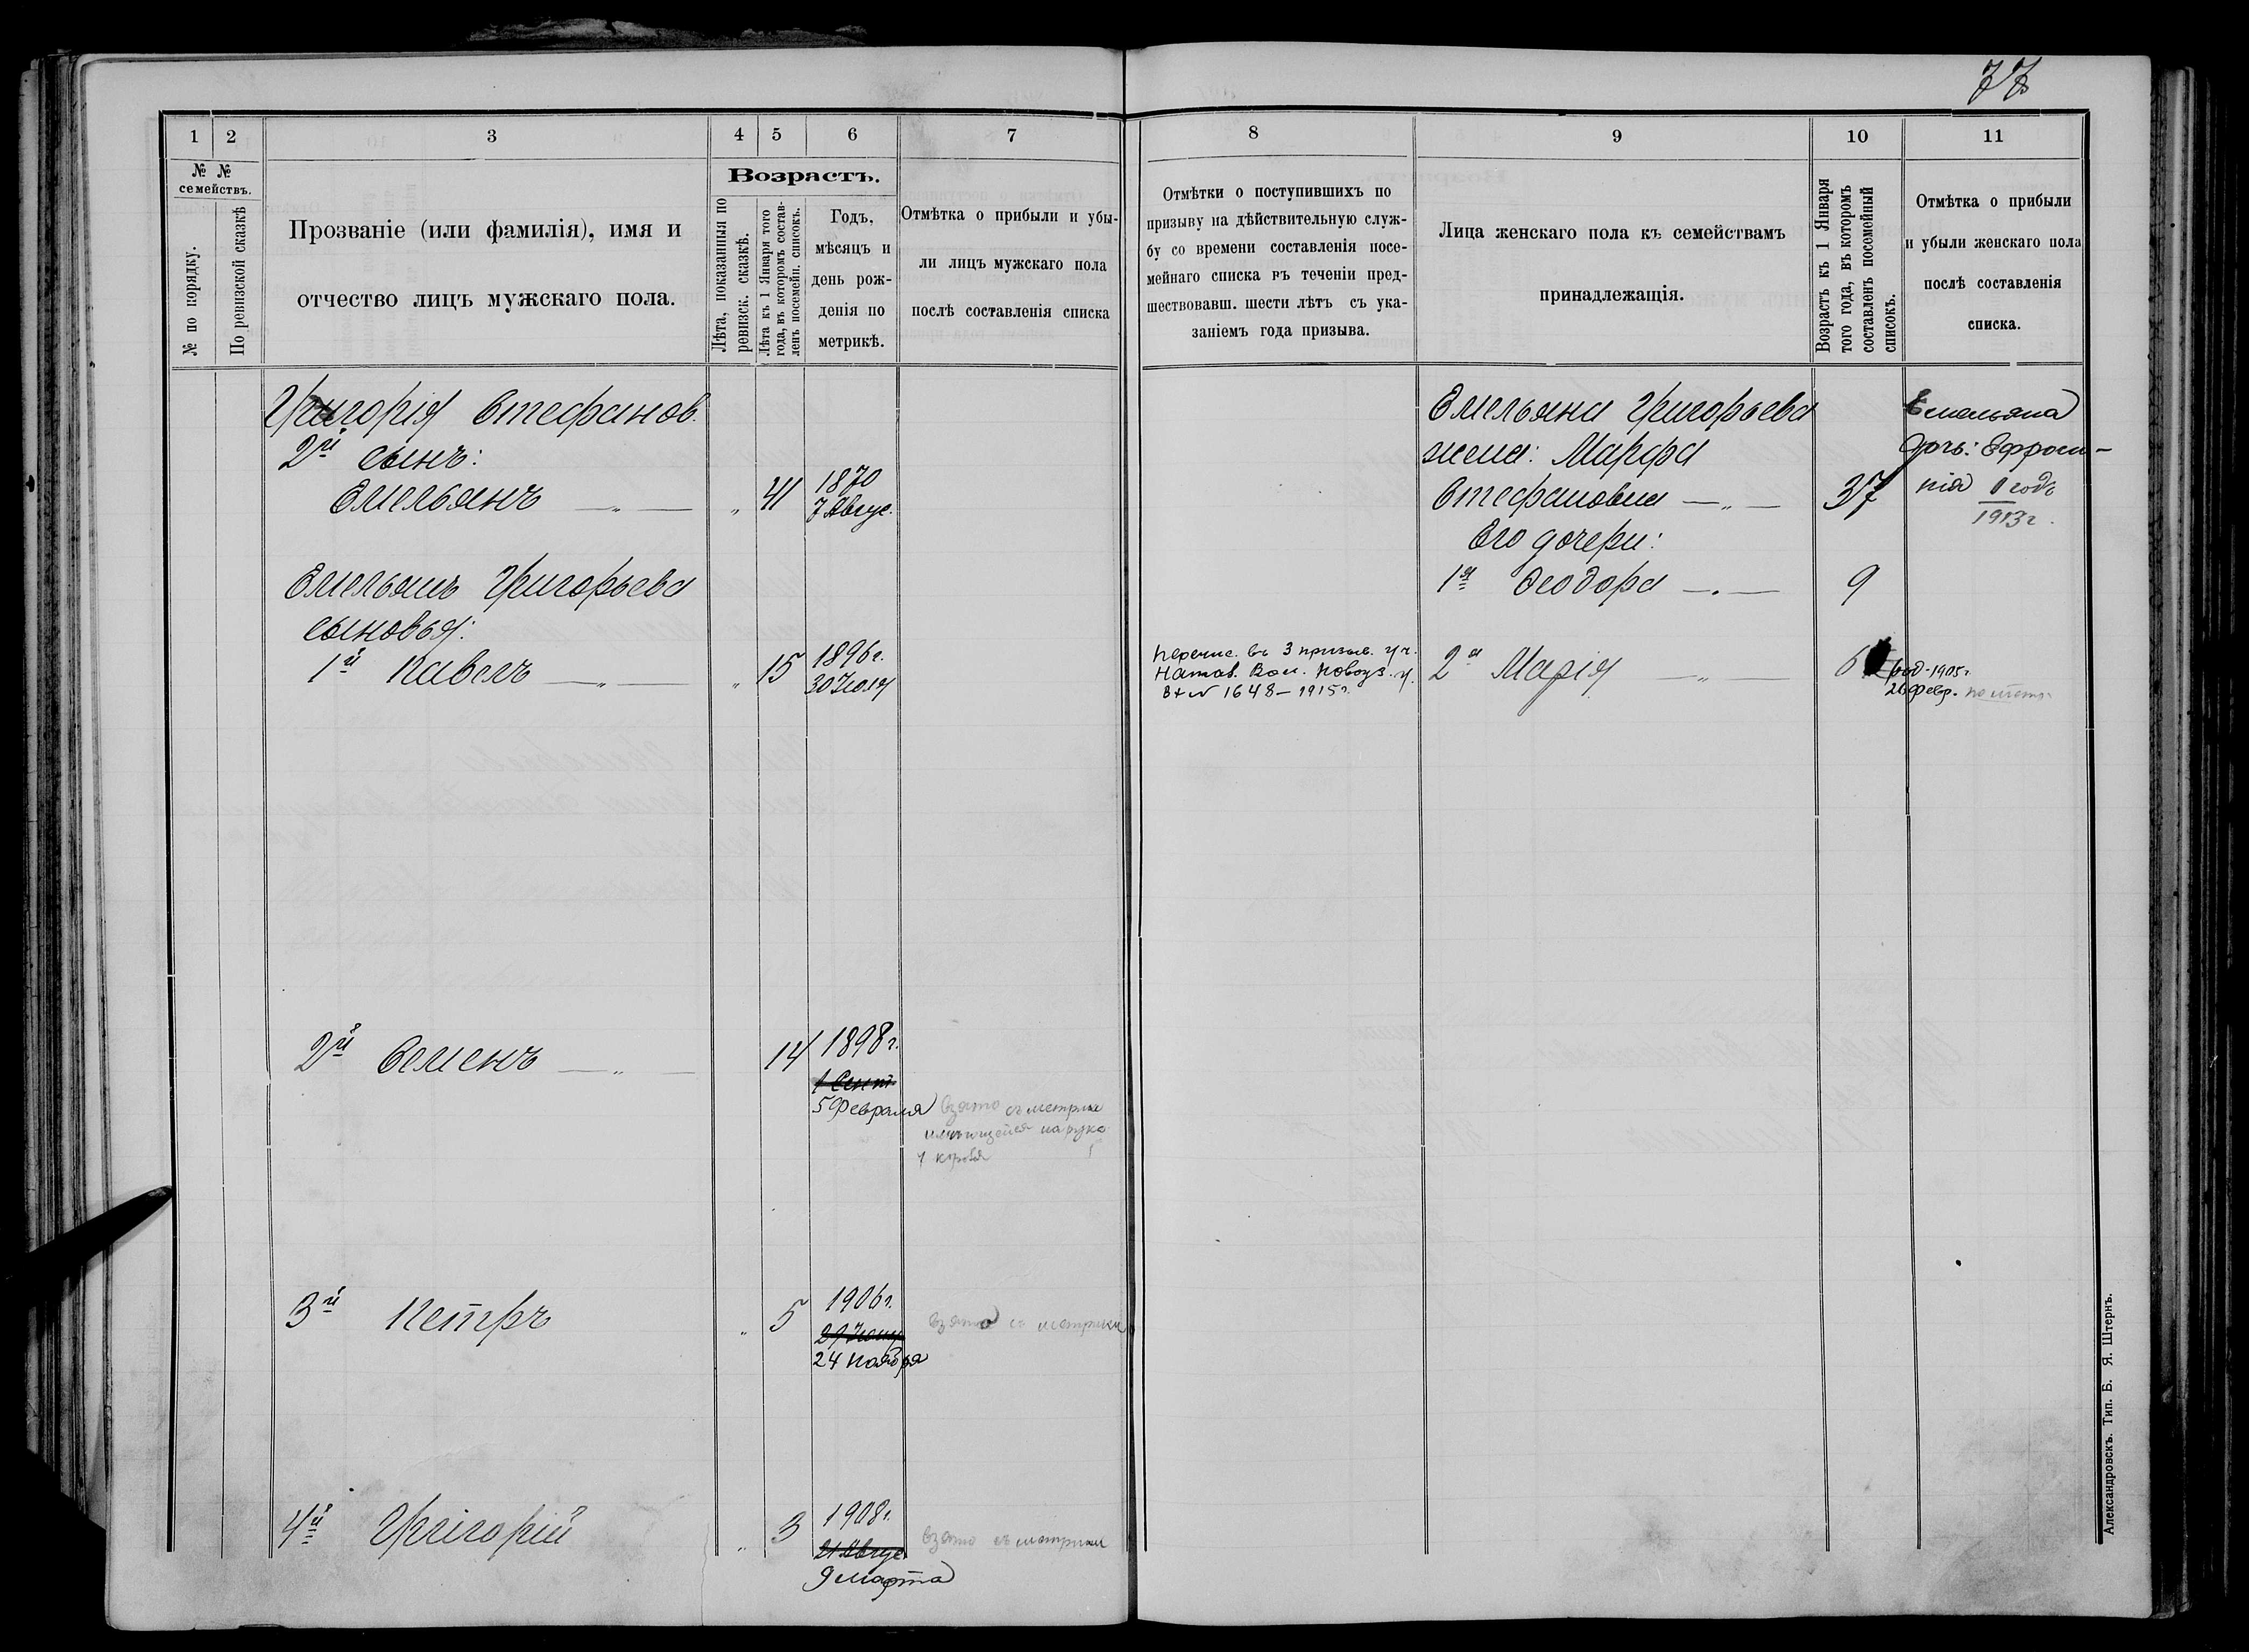 77
1
2
3
4
5
6
7
№ №
семействъ.
№ по порядку.
По ревизской сказкѣ
Прозваніе (или фамилія), имя и
отчество лицъ мужскаго пола.
Возрастъ.
Лѣта, показанныя по
ревизск. сказкѣ.
Лѣта къ 1 Января того
года, въ которомъ состав-
ленъ посемейн. списокъ.
Годъ,
мѣсяцъ и
день рож-
денія по
метрикѣ.
Отмѣтка о прибыли и убы-
ли лицъ мужскаго пола
послѣ составленія списка
Григорія Стефанов.
2й сынъ:
Емельянъ — „ — „ 41 1870
7 Авгус.
Емельянъ Григорьева
сыновья:
1й Павелъ — „ — „ 15 1896 г.
30 Іюля
2й Семенъ — „ — 14 1898 г.
1 Сент
5 Февраля взято съ метрики
имѣющейся на рука
3й Петръ „ 5 1906 г.
24 Ноября
взято съ метрики
4й Григорій „ 3 1908 г.
21 Авгус
9 Марта
взято съ метрики
8
9
10
11
Отмѣтки о поступившихъ по
призыву на дѣйствительную служ-
бу со времени составленія посе-
мейнаго списка въ теченіи пред-
шествовавш. шести лѣтъ съ ука-
заніемъ года призыва.
Лица женскаго пола къ семействамъ
принадлежащія.
Возрастъ къ 1 Января
того года, въ которомъ
составленъ посемейный
списокъ.
Отмѣтка о прибыли
и убыли женскаго пола
послѣ составленія
списка.
Емельяна Григорьева
жена: Марфа
Стефановна — „ — 37
Его дочери:
1я Феодора — „ — 9
2я Марія — „ — 6
Емельяна
дочь: Ефроси-
нія 1 годъ
1913 г.
род. 1905 г.
26 Февр.
Перечис. въ 3 призыв. уч.
Вол. Новоуз. у.
1648 – 1915 г.
Александровскъ. Тип. Б. Я. Штернъ.